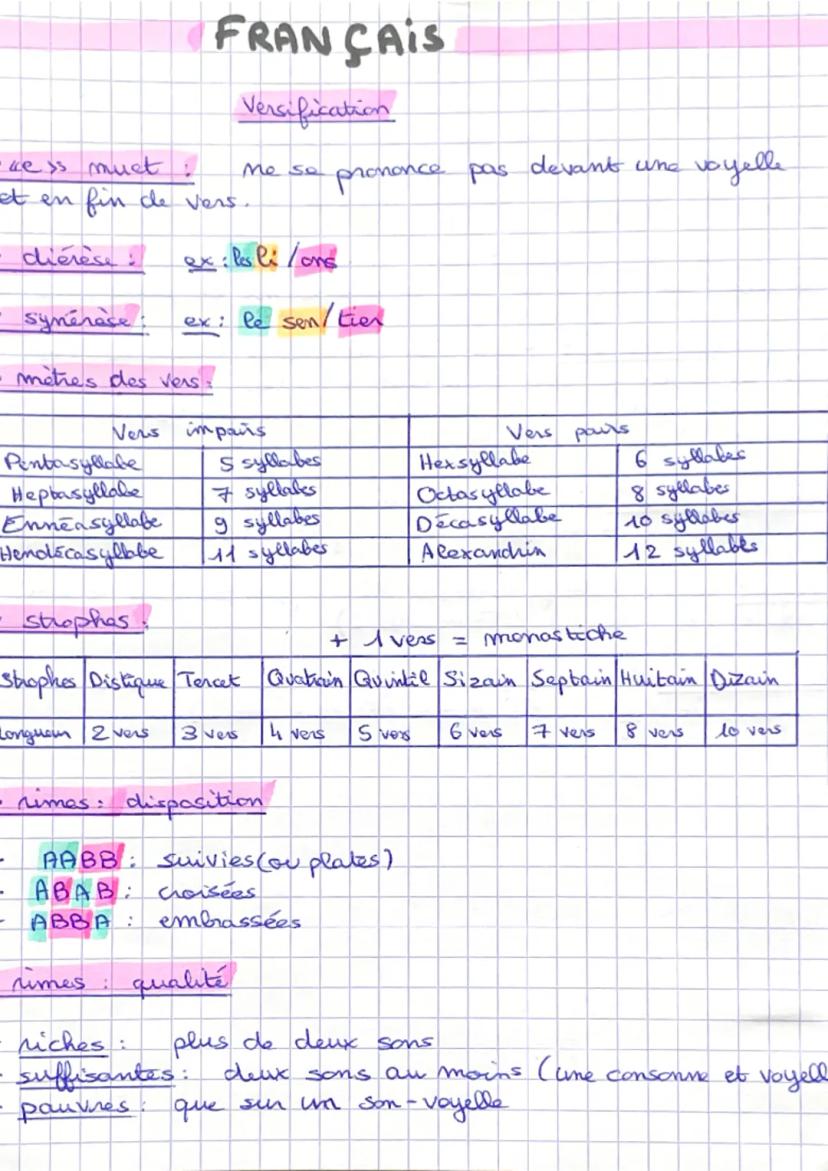 FRANÇAIS
Versification
«e» muet : ne se prononce pas devant une voyelle
et en fin de vers.
diérèse : ex : les li / ons
synérèse : ex : le sen / tier
mètres des vers :
Vers impairs Vers pairs
Pentasyllabe 5 syllabes Hexsyllabe 6 syllabes
Heptasyllabe 7 syllabes Octasyllabe 8 syllabes
Ennéasyllabe 9 syllabes Décasyllabe 10 syllabes
Hendécasyllabe 11 syllabes Alexandrin 12 syllabes
strophes :
+ 1 vers = monastiche
Strophes Distique Tercet Quatrain Quintil Sizain Septain Huitain Dizain
Longueur 2 vers 3 vers 4 vers 5 vers 6 vers 7 vers 8 vers 10 vers
rimes : disposition
- AABB : suivies (ou plates)
- ABAB : croisées
- ABBA : embrassées
rimes : qualité
- riches : plus de deux sons
- suffisantes : deux sons au moins (une consonne et voyell
- pauvres : que sur un son-voyelle